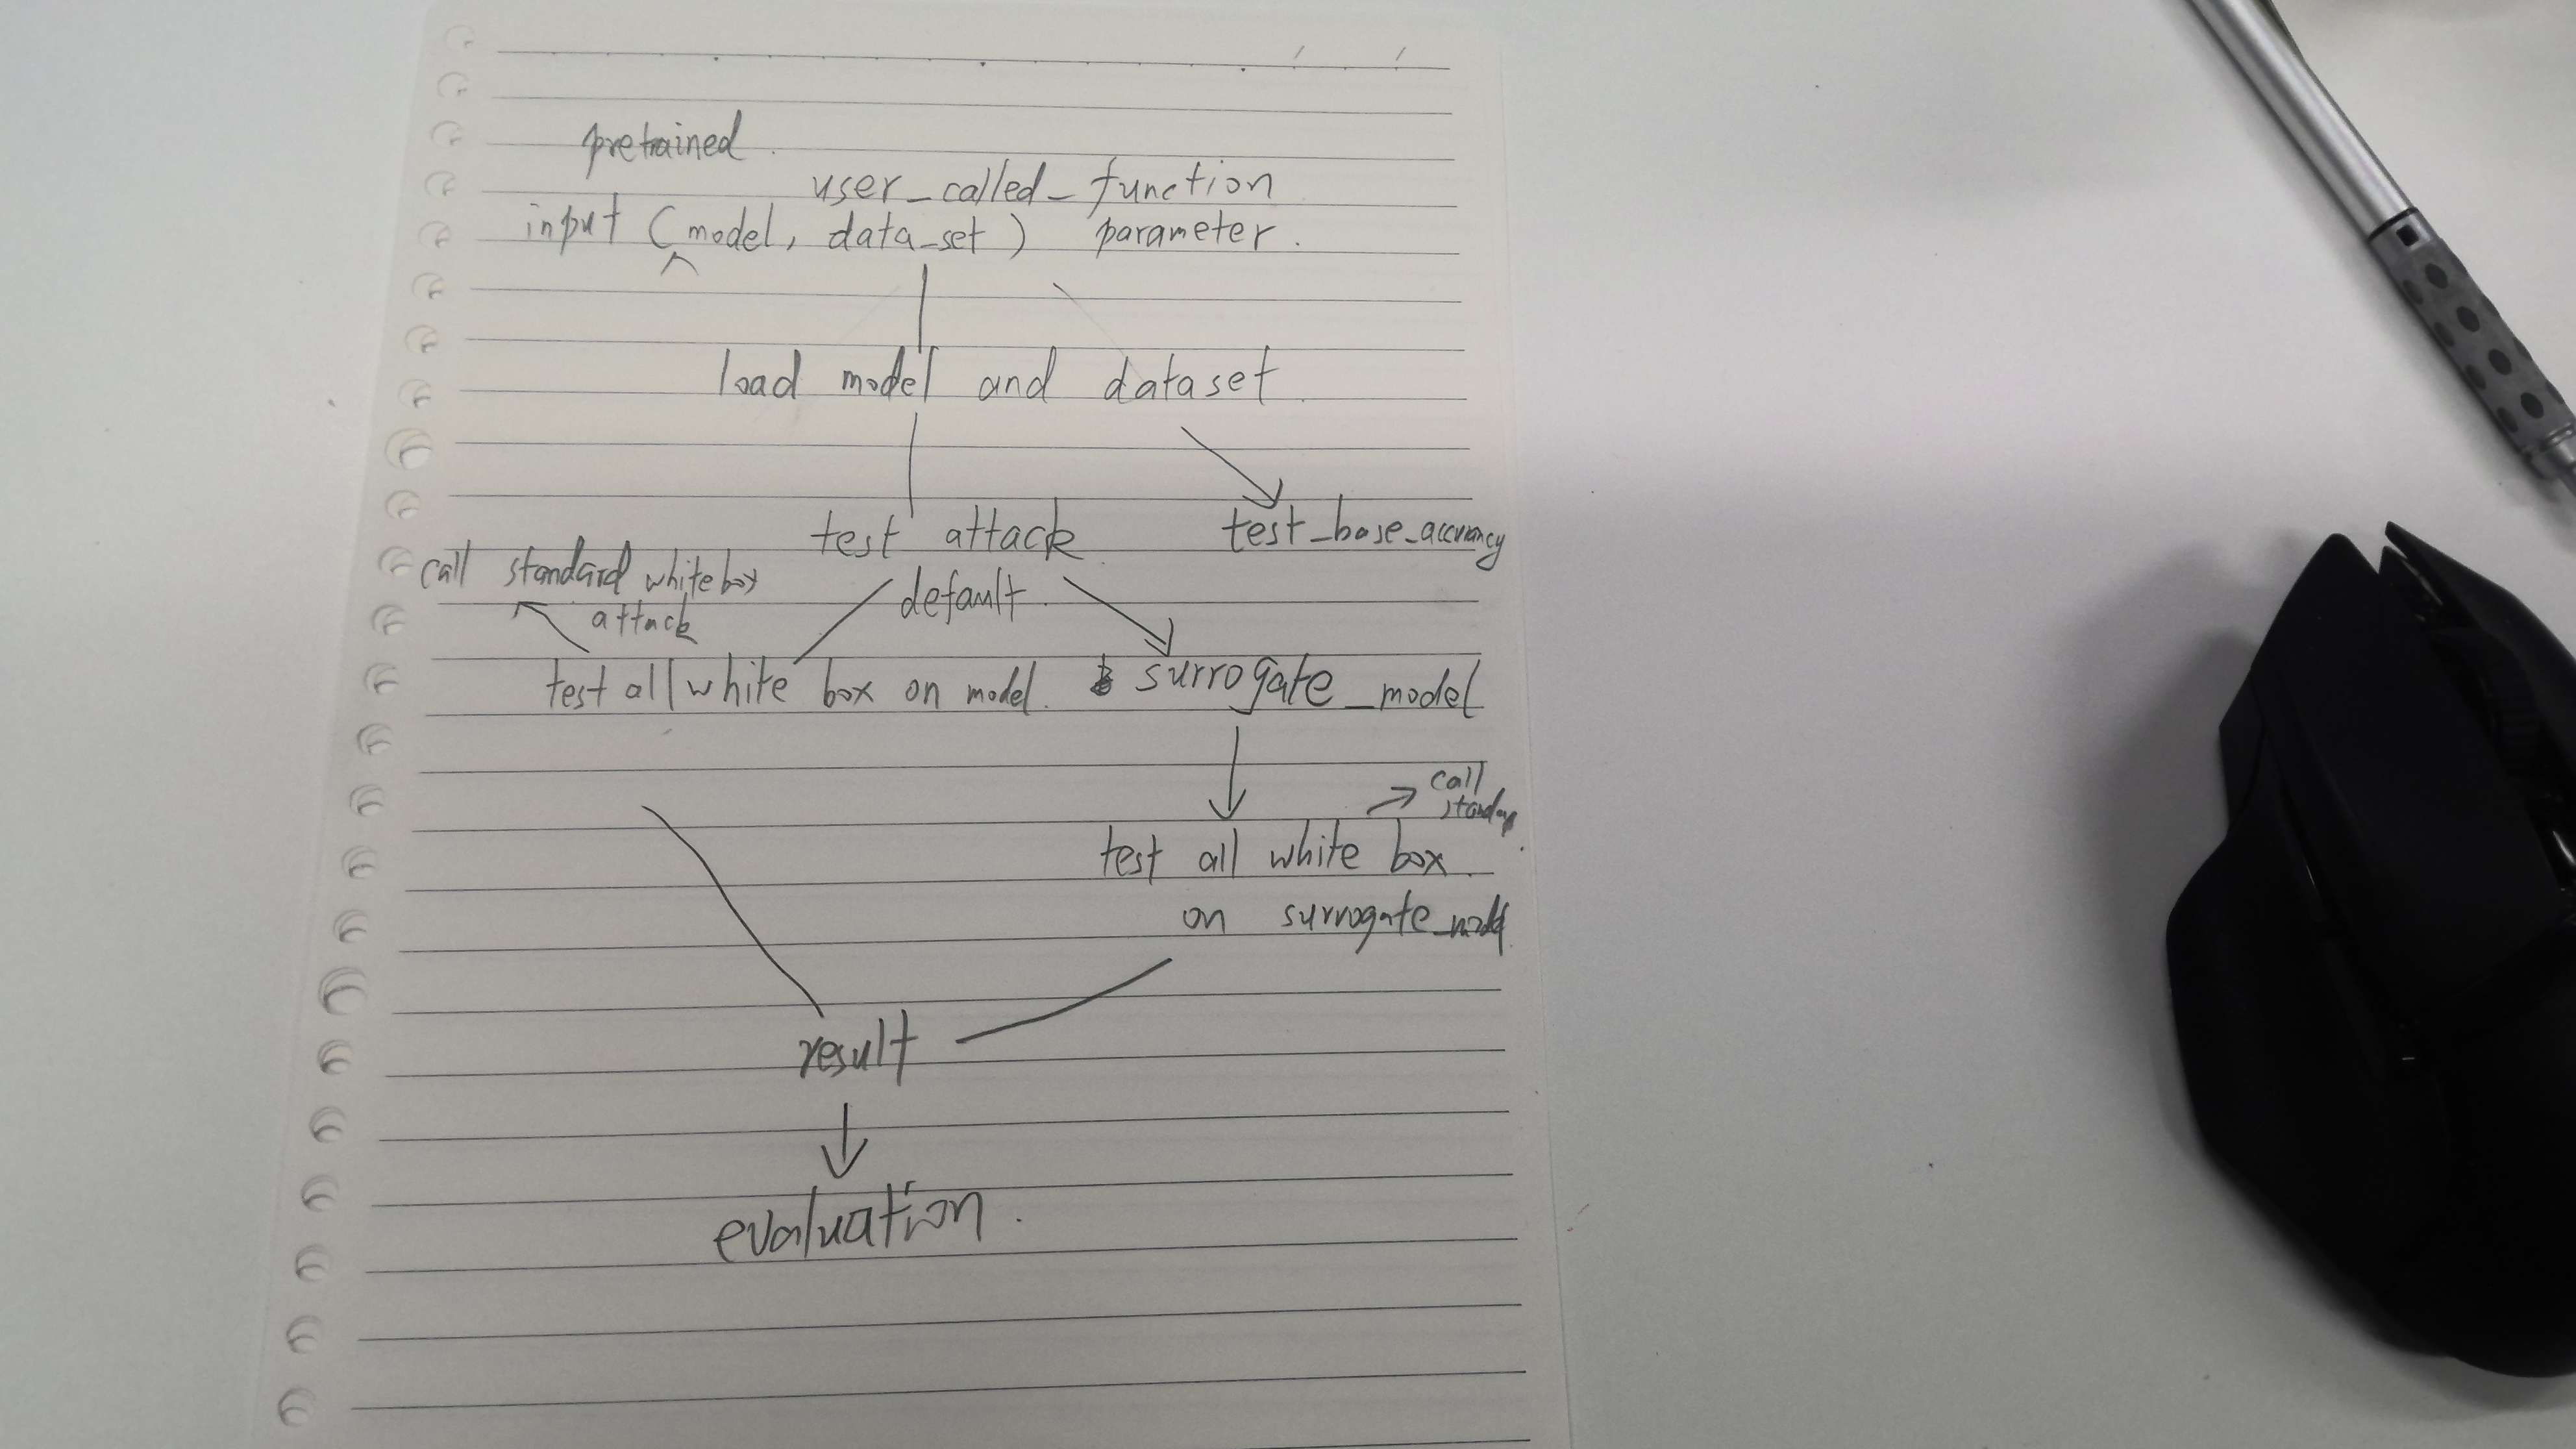 pretrained
user_called_function
input (model, data_set) parameter.
load model and dataset.
test attack
test_base_accuracy
call standard whitebox
attack
default.
test all white box on model.
surrogate_model
call
test all white box.
on surrogate_model
result
evaluation.